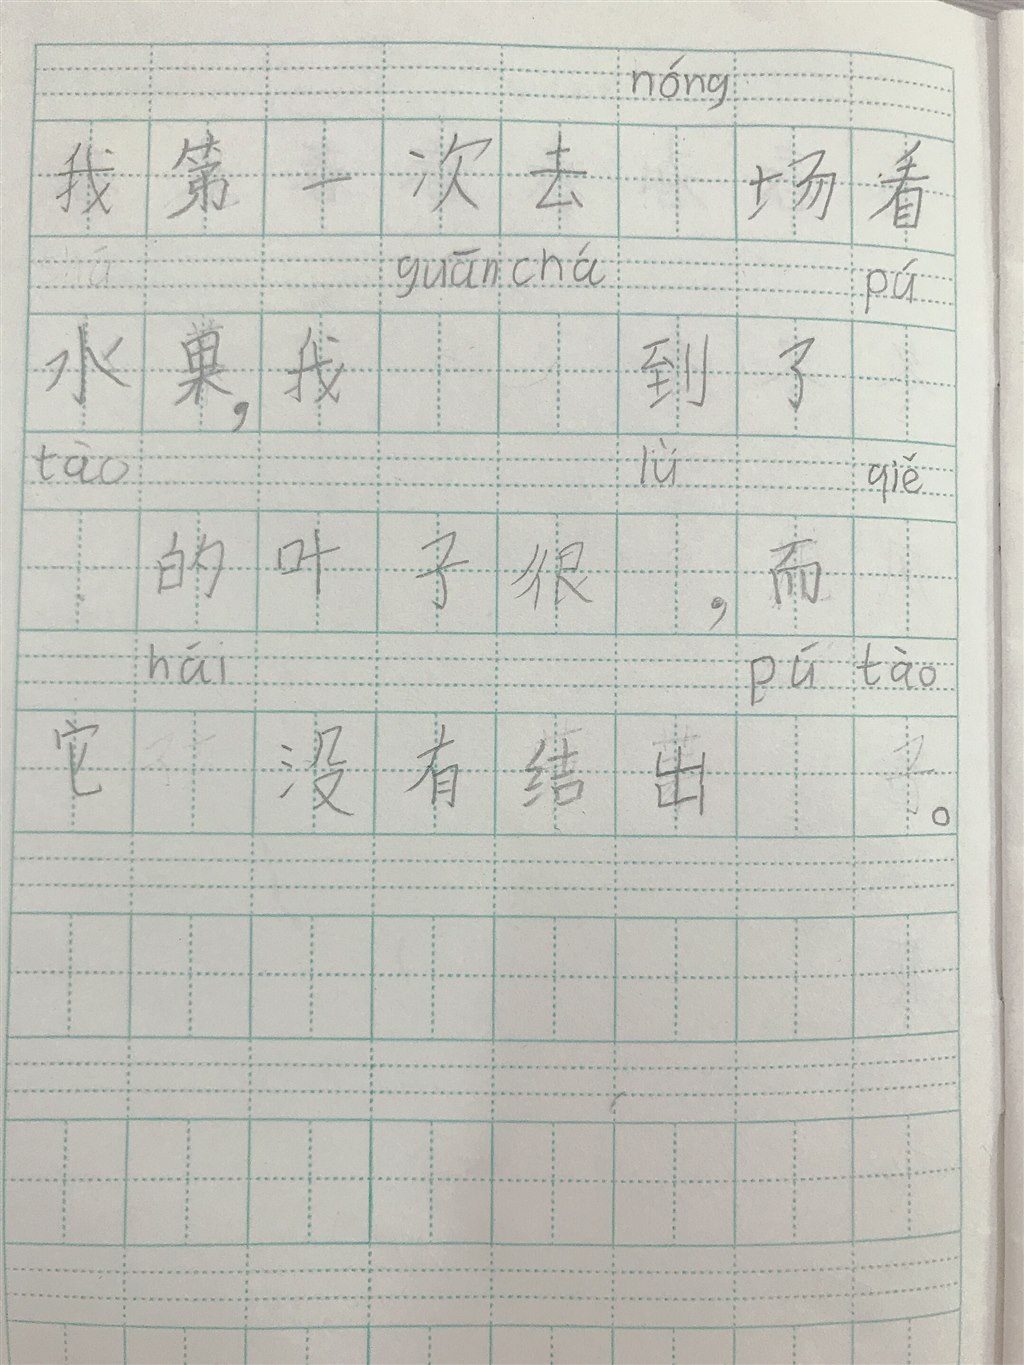 nóng
我第一次去 场看
guān chá pú
水巢,我 到了
tào lǜ qiě
的叶子很 ,而
hái pú tào
它 没有结出 。